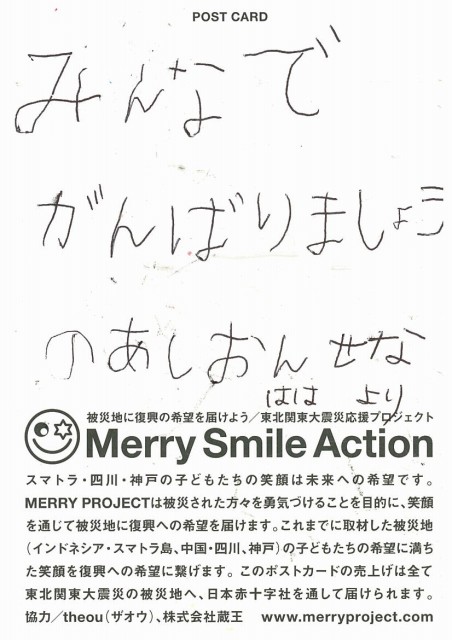 POST CARD
みんなで
がんばりましょう
のあ しおん せな
はは より
被災地に復興の希望を届けよう／東北関東大震災応援プロジェクト
Merry Smile Action
スマトラ・四川・神戸の子どもたちの笑顔は未来への希望です。
MERRY PROJECTは被災された方々を勇気づけることを目的に、笑顔
を通じて被災地に復興への希望を届けます。これまでに取材した被災地
（インドネシア・スマトラ島、中国・四川、神戸）の子どもたちの希望に満ち
た笑顔を復興への希望に繋げます。このポストカードの売上げは全て
東北関東大震災の被災地へ、日本赤十字社を通して届けられます。
協力／theou（ザオウ）、株式会社蔵王　www.merryproject.com